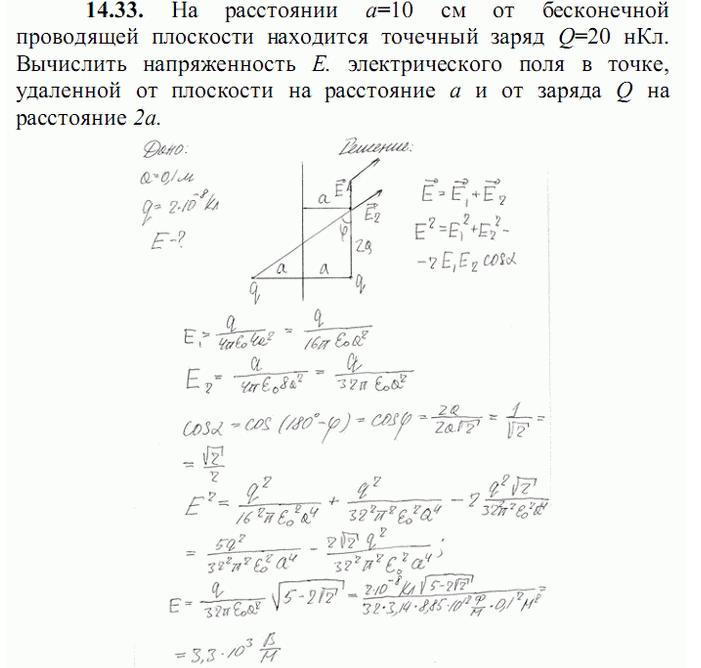 14.33. На расстоянии a=10 см от бесконечной
проводящей плоскости находится точечный заряд Q=20 нКл.
Вычислить напряженность E. электрического поля в точке,
удаленной от плоскости на расстояние a и от заряда Q на
расстояние 2a.
Дано:
a=0,1 м
q=2·10⁻⁸ Кл
E-?
Решение:
E⃗₁
a
E⃗₂
φ
2a
a a
q q
E⃗=E⃗₁+E⃗₂
E²=E₁²+E₂²-
-2E₁E₂cosα
E₁=q/(4πε₀4a²) = q/(16πε₀a²)
E₂=q/(4πε₀8a²) = q/(32πε₀a²)
cosα=cos(180°-φ)=cosφ=2a/(2a√2)=1/√2=
=√2/2
E²=q²/(16²π²ε₀²a⁴) + q²/(32²π²ε₀²a⁴) - 2 q²√2/(32²π²ε₀²a⁴)
=5q²/(32²π²ε₀²a⁴) - 2√2 q²/(32²π²ε₀²a⁴);
E=q/(32πε₀a²) √(5-2√2) = 2·10⁻⁸Кл√(5-2√2)/(32·3,14·8,85·10⁻¹² Ф/м·0,1² м²)=
=3,3·10³ В/м